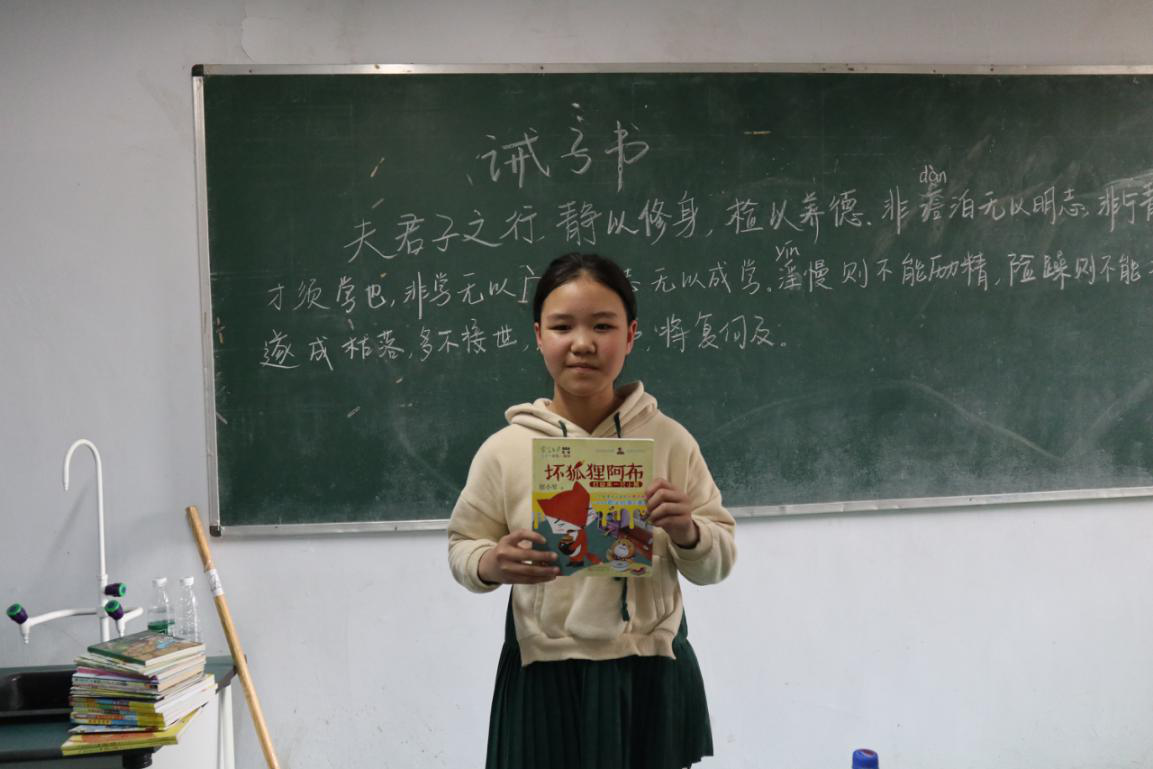 诫子书
dàn
夫君子之行,静以修身,检以养德.非澹泊无以明志.非宁
yín
才须学也,非学无以广 无以成学。淫慢则不能励精,险躁则不能
遂成枯落,多不接世, ,将复何及。
坏狐狸阿布